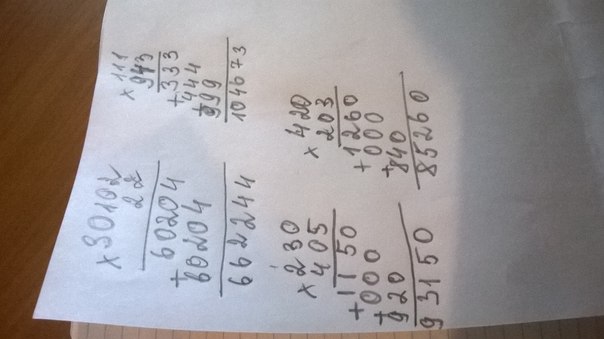 ×30102
22
60204
+60204
662244
×111
943
+333
+444
999
104673
×230
405
+1150
+000
920
93150
×420
203
+1260
+000
840
85260